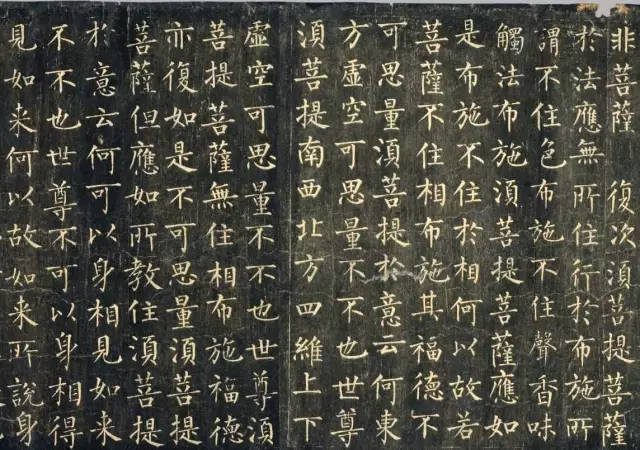 非菩薩 復次須菩提菩薩
於法應無所住行於布施所
謂不住色布施不住聲香味
觸法布施須菩提菩薩應如
是布施不住於相何以故若
菩薩不住相布施其福德不
可思量須菩提於意云何東
方虛空可思量不不也世尊
須菩提南西北方四維上下
虛空可思量不不也世尊須
菩提菩薩無住相布施福德
亦復如是不可思量須菩提
菩薩但應如所教住須菩提
於意云何可以身相見如来
不不也世尊不可以身相得
見如来何以故如来所說身